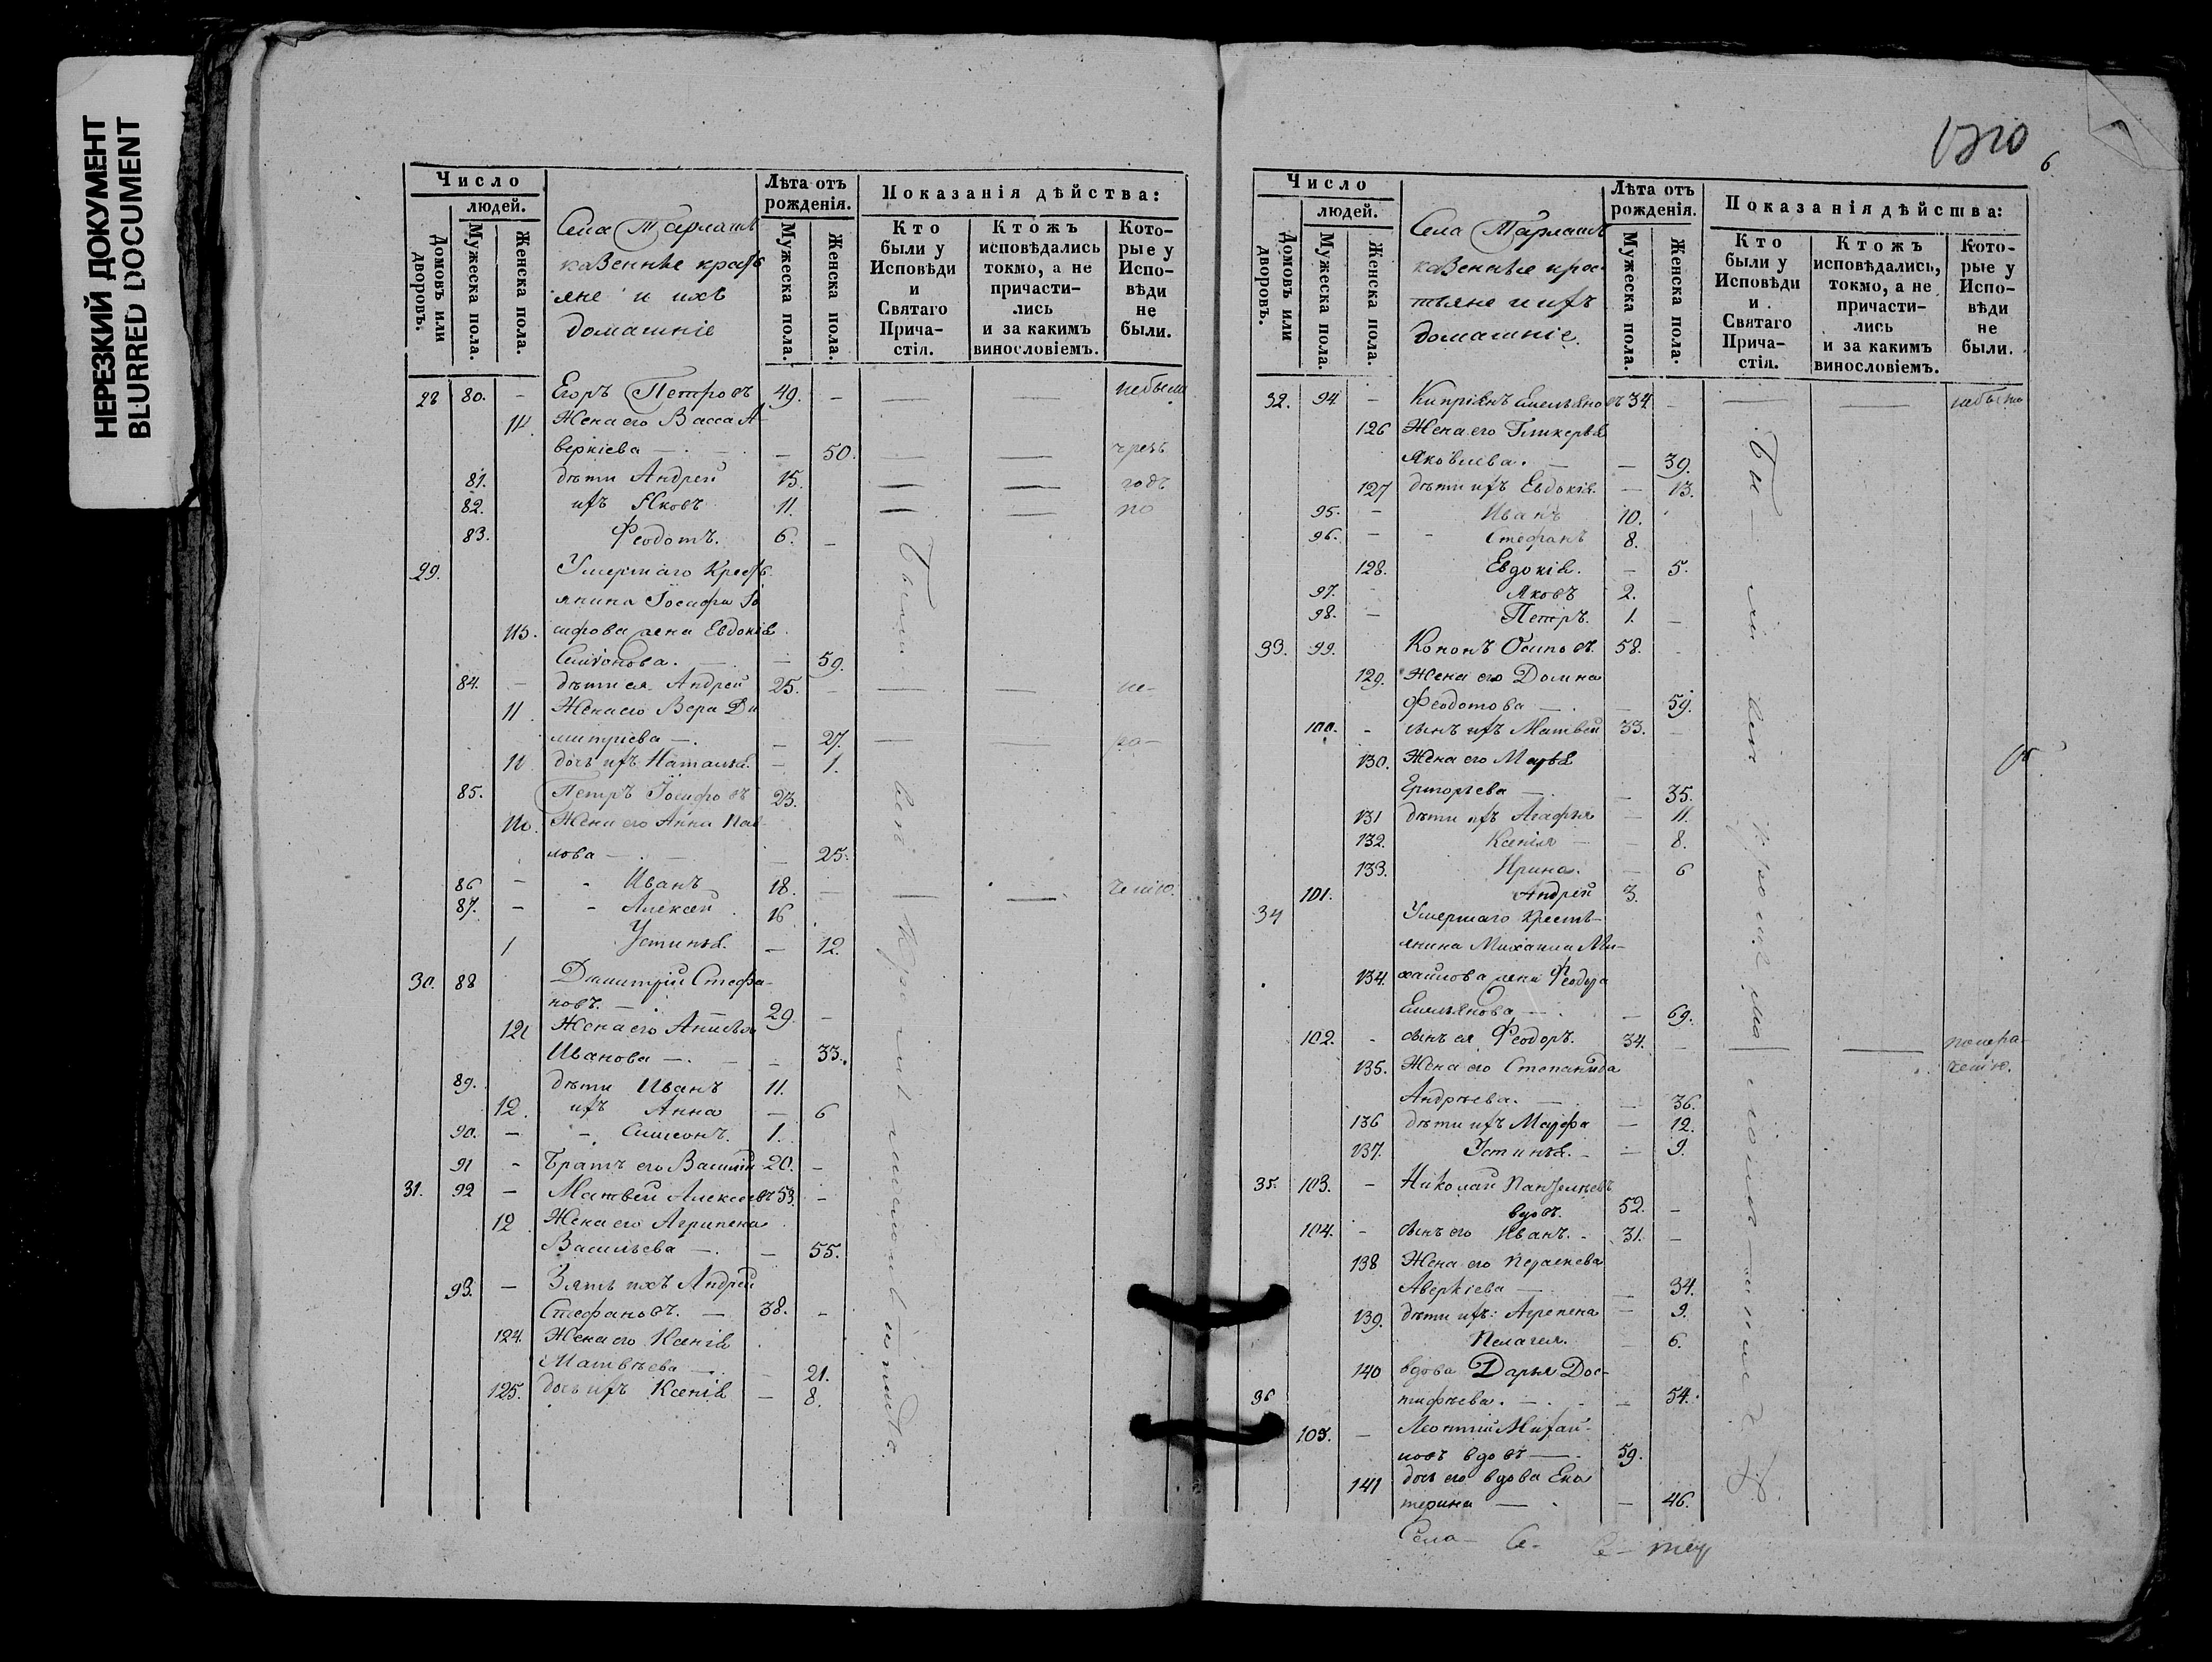 НЕРЕЗКИЙ ДОКУМЕНТ
BLURRED DOCUMENT
Число
людей.
Домовъ или дворовъ.
Мужеска пола.
Женска пола.
Села Тарлашъ
казенные
яне и ихъ
домашніе
Лѣта отъ рожденія.
Мужеска пола.
Женска пола.
Показанія дѣйства:
Кто были у Исповѣди и Святаго Причастія.
Ктожъ исповѣдались токмо, а не причастились и за какимъ винословіемъ.
Которые у Исповѣди не были.
28 80. – Егоръ Петровъ 49. – небыли
114. Жена его Васса А-
веркіева – 50. чрезъ
81. дѣти Андрей 15. годъ
82. ихъ Яковъ 11. по
83. Феодотъ. 6. –
29. Умершаго Крест.
янина Іосифа Іо
115. сифова жена Евдокія
Симіонова. – 59.
84. – дѣти ея Андрей 25. – не-
11 Жена его Вера Ди
митріева – 27. ра-
11 дочь ихъ Наталья. – 1.
85. Петръ Іосифовъ 23.
Жена его Анна Пав-
лова – 25.
86 – Иванъ 18. – ченію.
87. – Алексей 16
1 Устинья – 12.
30. 88 Димитрій Стефа-
новъ. – 29. –
121 Жена его
Иванова – 33.
89. дѣти Иванъ 11.
12. ихъ Анна – 6
90. – Симеонъ. 1.
91 – Братъ его Василій 20. –
31. 92 – Матвей Алексеевъ 53. –
12 Жена его Агрипена
Васильева – 55.
93. – Зять ихъ Андрей
Стефановъ. – 38. –
124. Жена его Ксенія
Матвѣева – 21.
125. дочь ихъ Ксенія – 8.
Были вси кроме
1210
6
Число
людей.
Домовъ или дворовъ.
Мужеска пола.
Женска пола.
Села Тарлашъ
казенные крес-
тьяне и ихъ
домашніе.
Лѣта отъ рожденія.
Мужеска пола.
Женска пола.
Показанія дѣйства:
Кто были у Исповѣди и Святаго Причастія.
Ктожъ исповѣдались, токмо, а не причастились и за какимъ винословіемъ.
Которые у Исповѣди не были.
32. 94 – Кипріянъ Емельяновъ 34 – небыли
126 Жена его Гликерья
Яковлева. – 39.
127 дѣти ихъ Евдокія – 13.
95. – Иванъ 10.
96. – Стефанъ 8.
128. Евдокія. – 5.
97. – Яковъ 2.
98. – Петръ. 1. –
33. 99. Кононъ Осиповъ. 58. –
129. Жена его Домна
Феодотова – 59.
100. – сынъ ихъ Матвей 33. –
130. Жена его Марья
Григорьева – 35.
131 дѣти ихъ Агафья – 11.
132. Ксенія – 8.
133. Ирина. – 6
101. Андрей 3.
34 Умершаго Кресть-
янина Михаила Ми-
134. хайлова жена Феодора
Емельянова – 69.
102. – сынъ ея Феодоръ. 34. – понера-
135. Жена его Степанида ченію.
Андрѣева. – 36.
136 дѣти ихъ Марфа – 12.
137. Устинья. – 9.
35. 103. – Николай
вдовъ. 52. –
104. – сынъ его Иванъ. 31. –
138 Жена его
Аверкіева – 34.
139. дѣти ихъ: Агрепена – 9.
Пелагея. – 6.
140 вдова Дарья Дос-
36 тифѣева. – 54.
105. – Леонтій Михай-
ловъ вдовъ – 59.
141 дочь его вдова Ека
терина – 46.
Бы-ли вси кроме
Села –